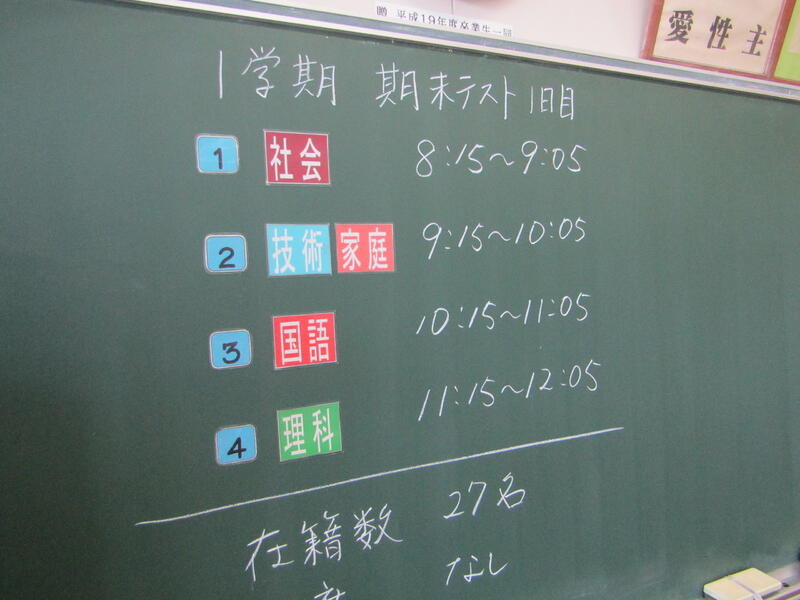 贈 平成19年度卒業生一同
愛 性 主
1学期 期末テスト 1日目
1 社会 8:15～9:05
2 技術 家庭 9:15～10:05
3 国語 10:15～11:05
4 理科 11:15～12:05
在籍数 27名
なし